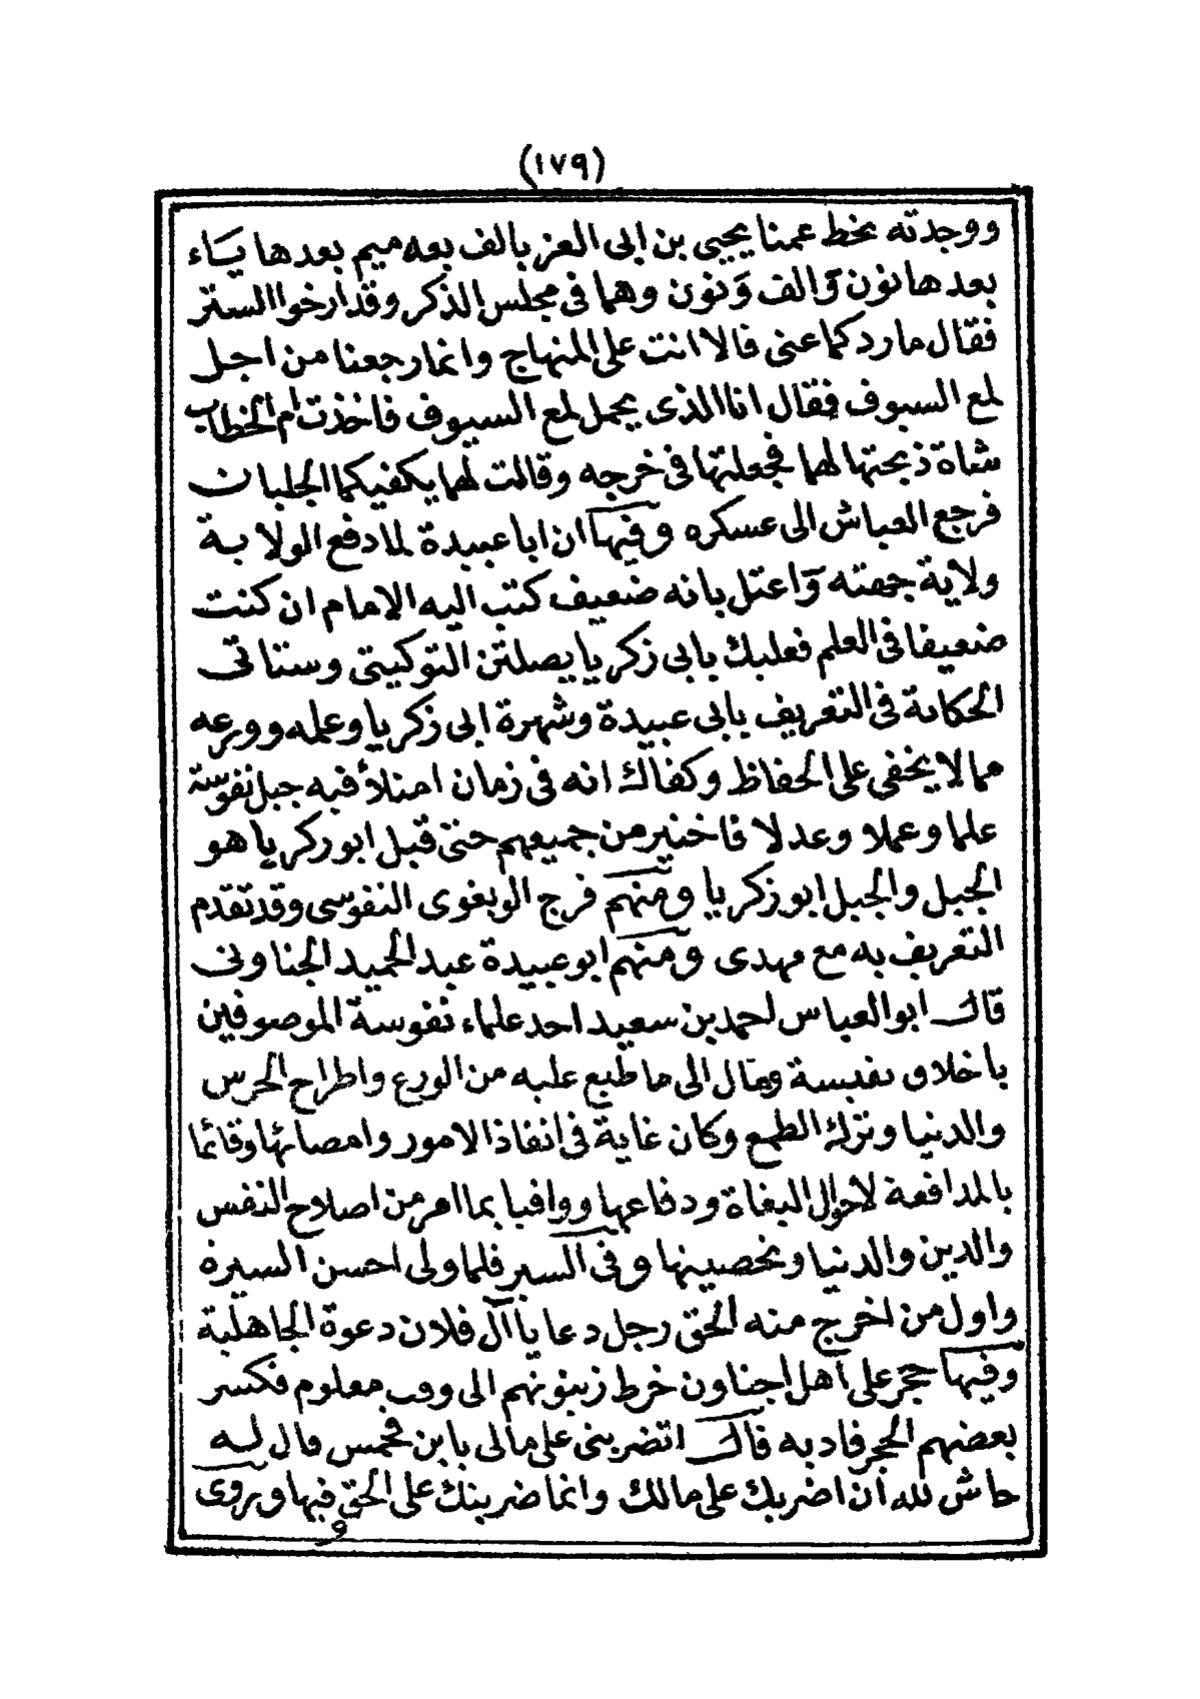 (١٧٩)
ووجدته بخط عمنا يحيى بن ابى العز بالف بعه ميم بعدها يَاء
بعدها نون وَالف وَنون وهما فى مجلس الذكر وقد ارخوا الستر
فقال ما ردكما عنى قالا انت على المنهاج وانما رجعنا من اجل
لمع السيوف فقال انا الذى يحمل لمع السيوف فاخذت ام الخطاب
شاة ذبحتها لهما فجعلتها فى خرجه وقالت لهما يكفيكما الجلبان
فرجع العباش الى عسكره وفيها ان ابا عبيدة لما دفع الولاية
ولاية جهته وَاعتل بانه ضعيف كتب اليه الامام ان كنت
ضعيفا فى العلم فعليك بابى زكريا يصلتن التوكيتى وستاتى
الحكاية فى التعريف بابى عبيدة وشهرة ابى زكريا وعلمه وورعه
مما لا يخفى على الحفاظ وكفاك انه فى زمان امتلأ فيه جبل نفوسة
علما وعملا وعدلا فاختير من جميعهم حتى قيل ابو زكريا هو
الجبل والجبل ابو زكريا ومنهم فرج الويغوى النفوسى وقد تقدم
التعريف به مع مهدى ومنهم ابو عبيدة عبد الحميد الجناونى
قال ابو العباس احمد بن سعيد احد علماء نفوسة الموصوفين
باخلاق نفيسة ومال الى ما طبع عليه من الورع واطراح الحرس
والدنيا وترك الطمع وكان غاية فى انفاذ الامور وامصائها وقائما
بالمدافعة لاحوال البغاة ودفاعها ووافيا بما امر من اصلاح النفس
والدين والدنيا وتحصينها وفى السير فلما ولى احسن السيرة
واول من اخرج منه الحق رجل دعا يا آل فلان دعوة الجاهلية
وفيها حجر على اهل اجناون خرط زيتونهم الى وقت معلوم فكسر
بعضهم الحجر فادبه قال اتضربنى على مالى يا ابن فحمس قال له
حاش لله ان اضربك على مالك وانما ضربتك على الحق فيها ويروى
و